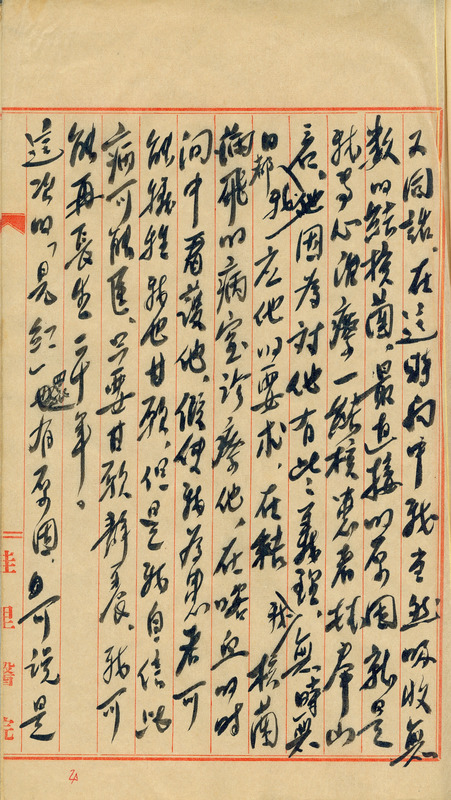 又同話。在這時初中我当然吸收無
数的結核菌,最直接的原因就是
我専心治療一結核患者林
言。我因為対他有此義理,無時無
日都応他的要求,在結核菌
満飛的病室診療他,在喀血的時
間中看護他,假使我為患者可
能犠牲我也甘愿,但是我自信此
病可能医,只要甘愿静養,我可
能再長生二十年。
這次的「見紅」也有原因,可説是
佳里醫院
24